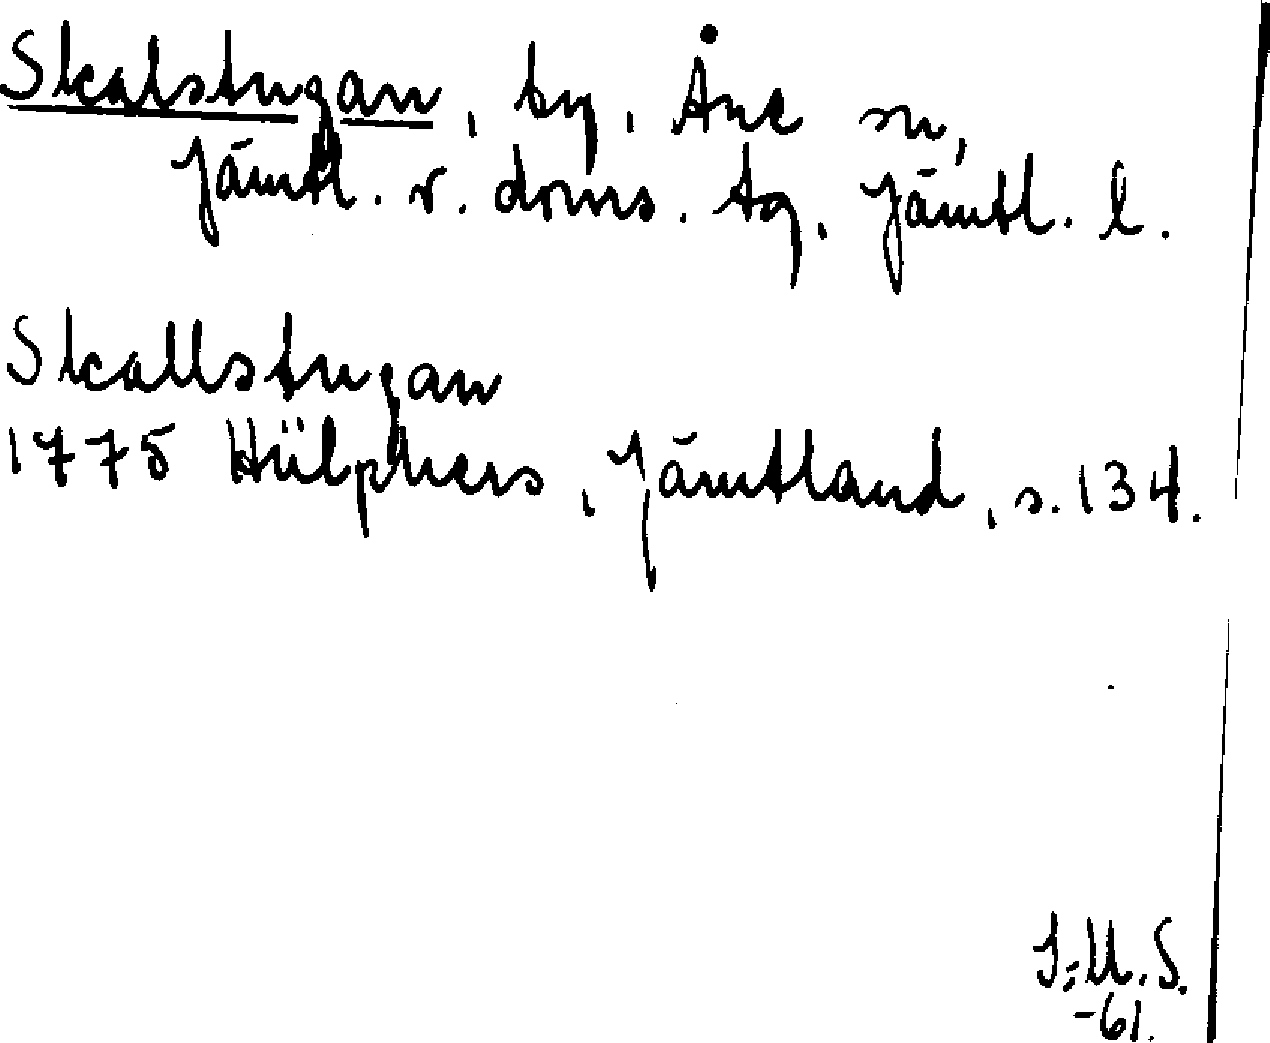 Skalstugan, by, Åre sn,
Jämtl. v. doms. tg, Jämtl. l.
Skallstugan
1775 Hülphers, Jämtland, s. 134.
J:U.S.
-61.